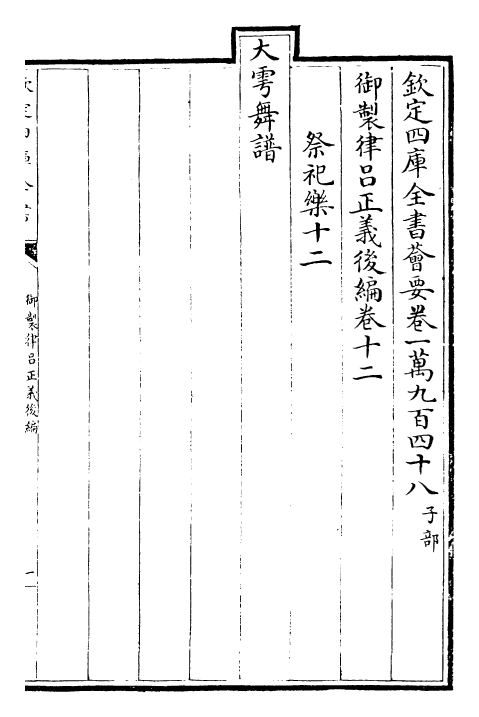 欽定四庫全書薈要卷一萬九百四十八 子部
御製律呂正義後編卷十二
祭祀樂十二
大雩舞譜
御製律呂正義後編
一